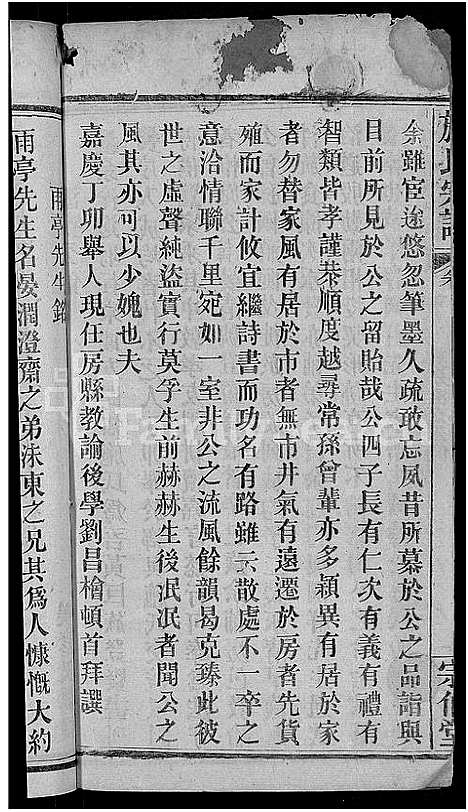 氏宗譜
余雖宦途悠忽筆墨久疏敢忘夙昔所慕於公之品詣與
目前所見於公之留貽哉公四子長有仁次有義有禮有
智類皆孝謹恭順度越尋常孫曾輩亦多穎異有居於家
者勿替家風有居於市者無市井氣有遠遷於房者先貨
殖而家計攸宜繼詩書而功名有路雖云散處不一卒之
意洽情聯千里宛如一室非公之流風餘韻曷克臻此彼
世之虛聲純盜實行莫孚生前赫赫生後泯泯者聞公之
風其亦可以少媿也夫
嘉慶丁卯舉人現任房縣教諭後學劉昌檜頓首拜譔
雨亭先生銘
雨亭先生名晏潤澄齋之弟洙東之兄其爲人慷慨大約